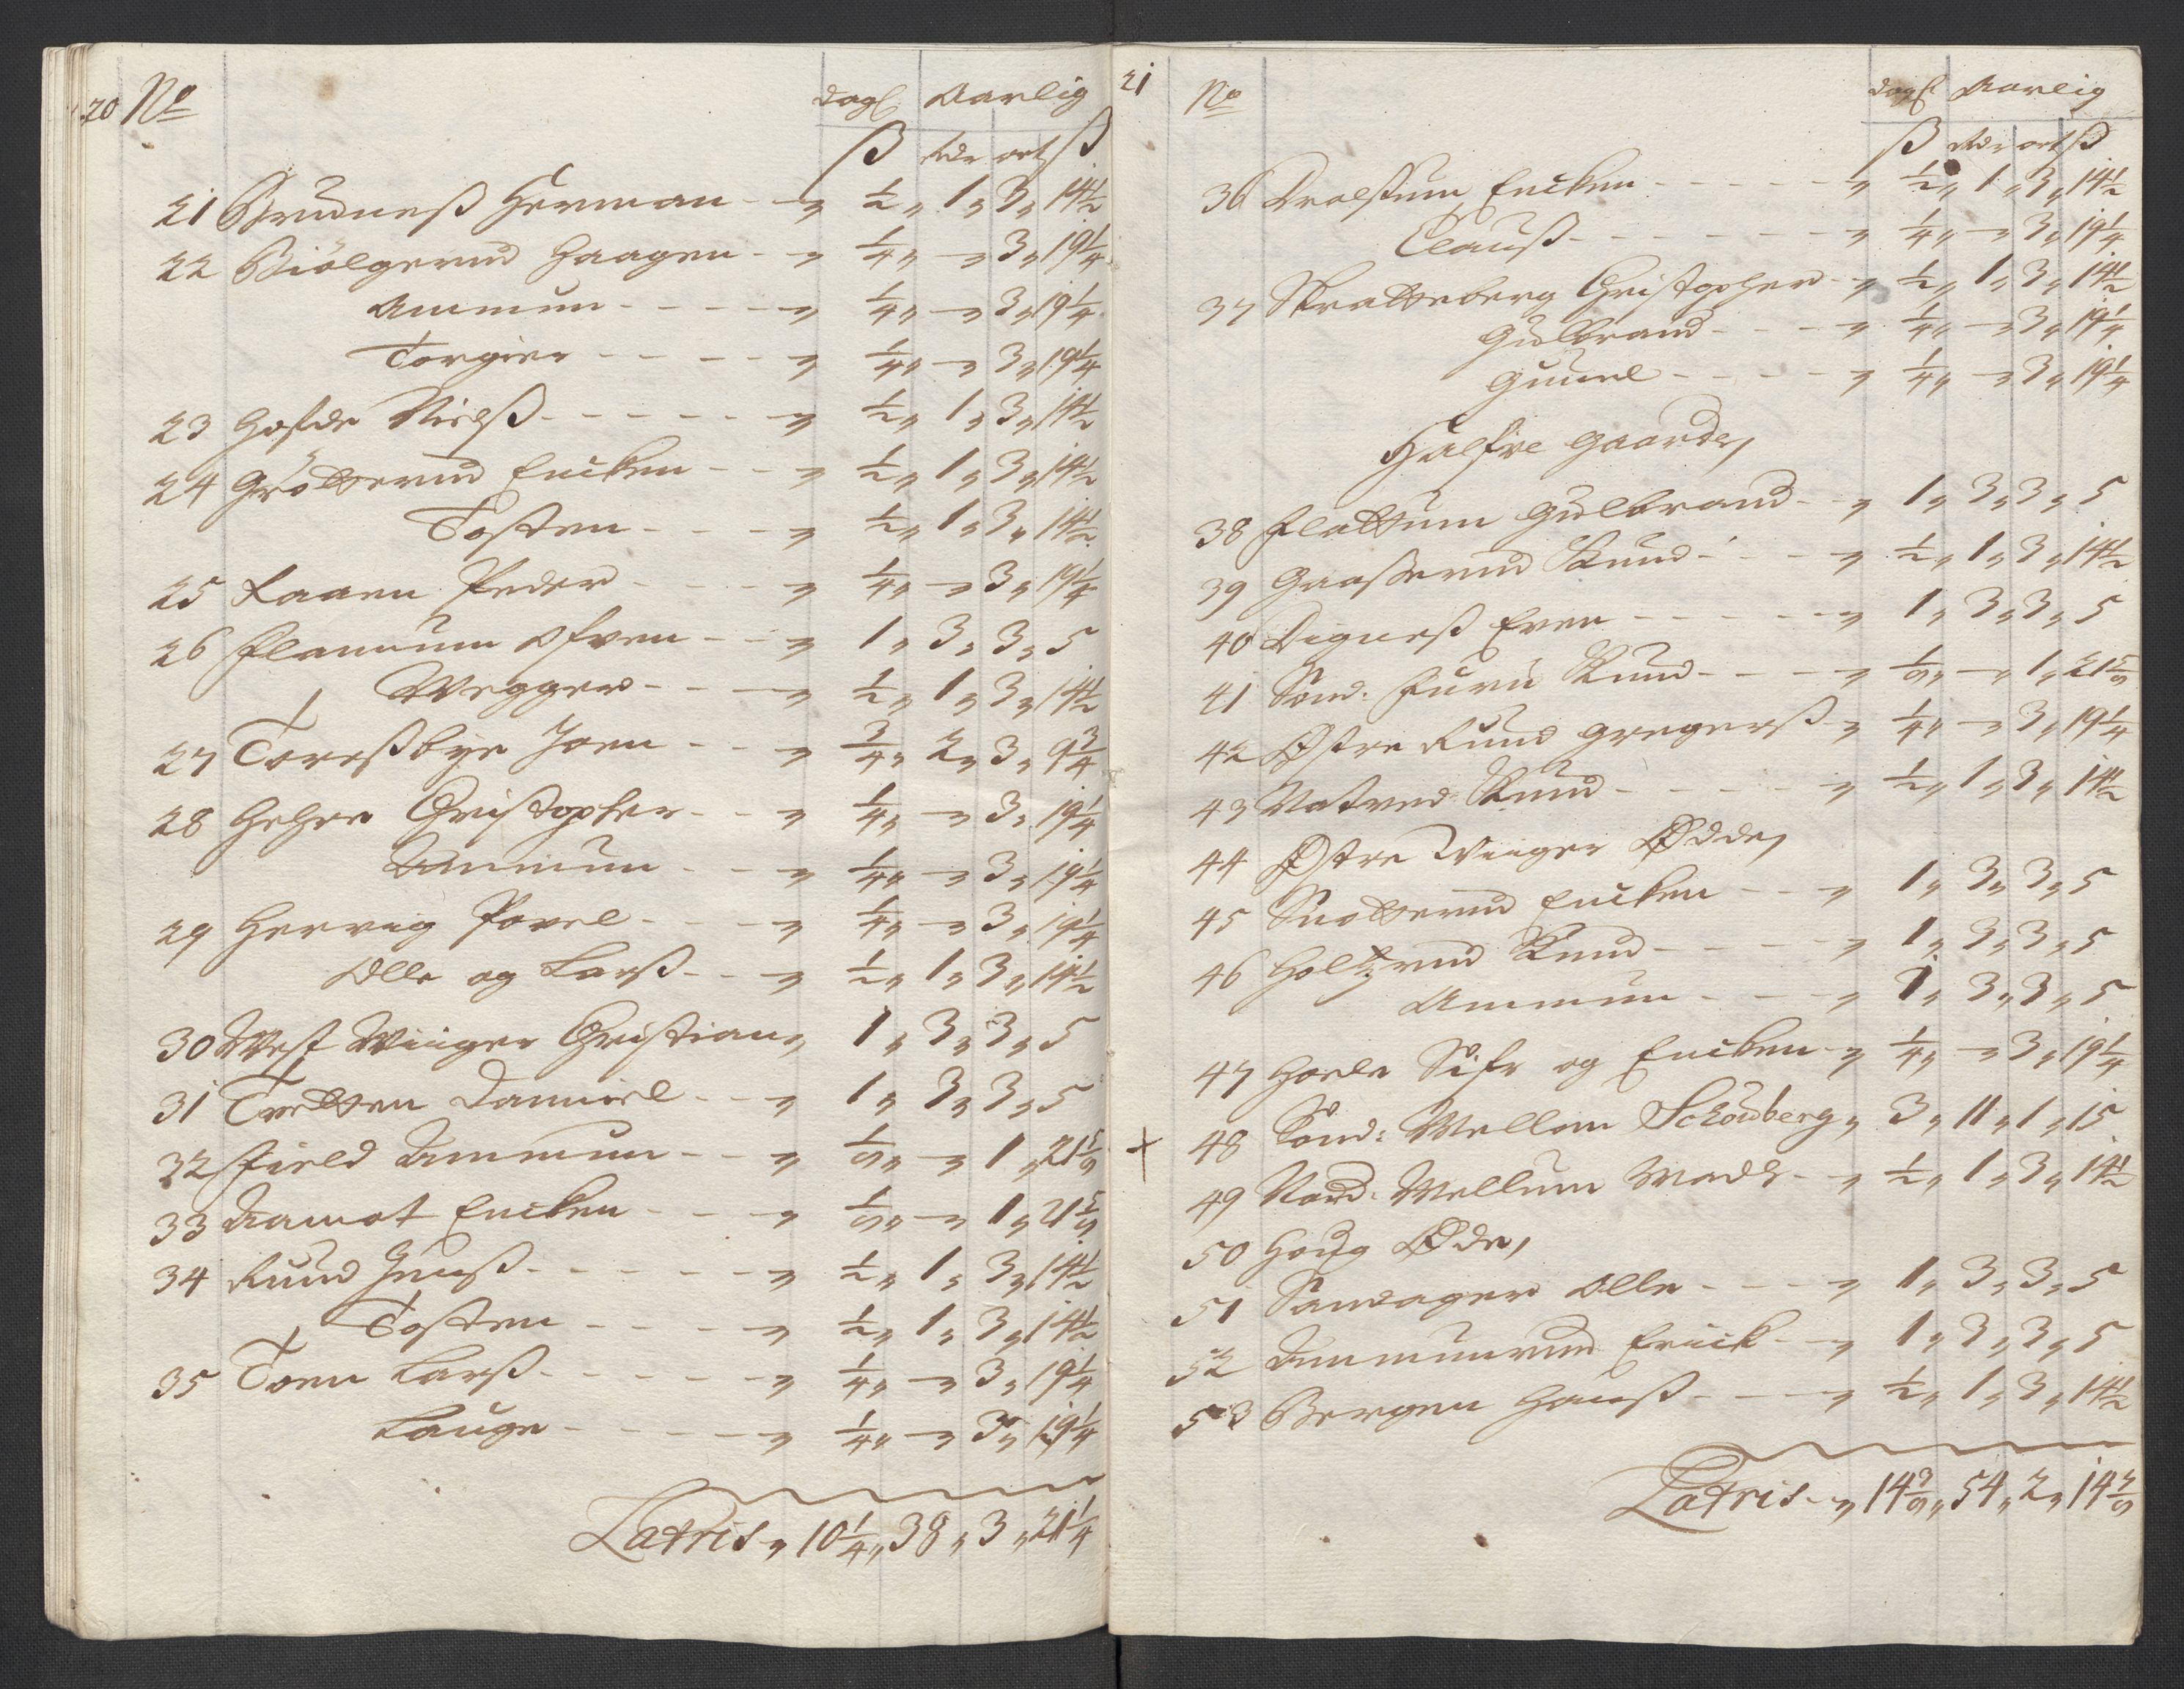 20 No dagl Aarlig
ß Rdr ort ß
21 Brudneß Herman - „ ½ „ 1 „ 3 „ 14½
22 Biölgerud Haagen - „ ¼ „ - „ 3 „ 19¼
Ammun - - - - „ ¼ „ - „ 3 „ 19¼
Torgier - - - - „ ¼ „ - „ 3 „ 19¼
23 Hofde Nielß - - - - - „ ½ „ 1 „ 3 „ 14½
24 Grötterud Encken - - „ ½ „ 1 „ 3 „ 14½
Tosten - - - „ ½ „ 1 „ 3 „ 14½
25 Raaen Peder - - - „ ¼ „ - „ 3 „ 19¼
26 Flannum Ofven - - „ 1 „ 3 „ 3 „ 5
Wegger - - - „ ½ „ 1 „ 3 „ 14½
27 Toreßbye Joen - - „ ¾ „ 2 „ 3 „ 9¾
28 Gehre Christopher - - „ ¼ „ - „ 3 „ 19¼
Ammun - - - „ ¼ „ - „ 3 „ 19¼
29 Herwig Powel - - - „ ¼ „ - „ 3 „ 19¼
Olle og Larß - - „ ½ „ 1 „ 3 „ 14½
30 West Wiiger Christian „ 1 „ 3 „ 3 „ 5
31 Tvetten Danniel - - „ 1 „ 3 „ 3 „ 5
32 Field Ammun - - „ 1/9 „ - „ 1 „ 21 5/9
33 Aamot Encken - - - „ 1/9 „ - „ 1 „ 21 5/9
34 Rund Jenß - - - - - „ ½ „ 1 „ 3 „ 14½
Tosten - - - - „ ½ „ 1 „ 3 „ 14½
35 Toen Larß - - - - - „ ¼ „ - „ 3 „ 19¼
Lauge - - - - - „ ¼ „ - „ 3 „ 19¼
Latris „ 10¼ „ 38 „ 3 „ 21¼
21 No dagl Aarlig
ß Rdr ort ß
36 Drolstum Encken - - - - - „ ½ „ 1 „ 3 „ 14½
Clauß - - - - - - „ ¼ „ - „ 3 „ 19¼
37 Skratteberg Christopher - „ ½ „ 1 „ 3 „ 14½
Gulbrand - - - „ ¼ „ - „ 3 „ 19¼
Gunel - - - - „ ¼ „ - „ 3 „ 19¼
Halfve Gaarde,
38 Flattum Gulbrand - - „ 1 „ 3 „ 3 „ 5
39 Gaasserud Knud - - - „ ½ „ 1 „ 3 „ 14½
40 Digneß Even - - - - - „ 1 „ 3 „ 3 „ 5
41 Sönd: Furu Knud - - - „ 1/9 „ - „ 1 „ 21 5/9
42 Østre Rund Gregerß „ ¼ „ - „ 3 „ 19¼
43 Natved Knud - - - - - „ ½ „ 1 „ 3 „ 14½
44 Østre Wiiger Ødde,
45 Snotterud Encken - - „ 1 „ 3 „ 3 „ 5
46 Holtzrud Knud - - - - „ 1 „ 3 „ 3 „ 5
Ammun - - - „ 1 „ 3 „ 3 „ 5
47 Hoele Sifr og Encken „ ¼ „ - „ 3 „ 19¼
+ 48 Sönd: Wellen Schouberg „ 3 „ 11 „ 1 „ 15
49 Nord: Wellum Mads - „ ½ „ 1 „ 3 „ 14½
50 Houg Øde,
51 Sandager Olle - - - „ 1 „ 3 „ 3 „ 5
52 Ammunrud Erick - - „ 1 „ 3 „ 3 „ 5
53 Bergen Hanß - - - - „ ½ „ 1 „ 3 „ 14½
Latris - „ 14 3/9 „ 54 „ 2 „ 14 3/9